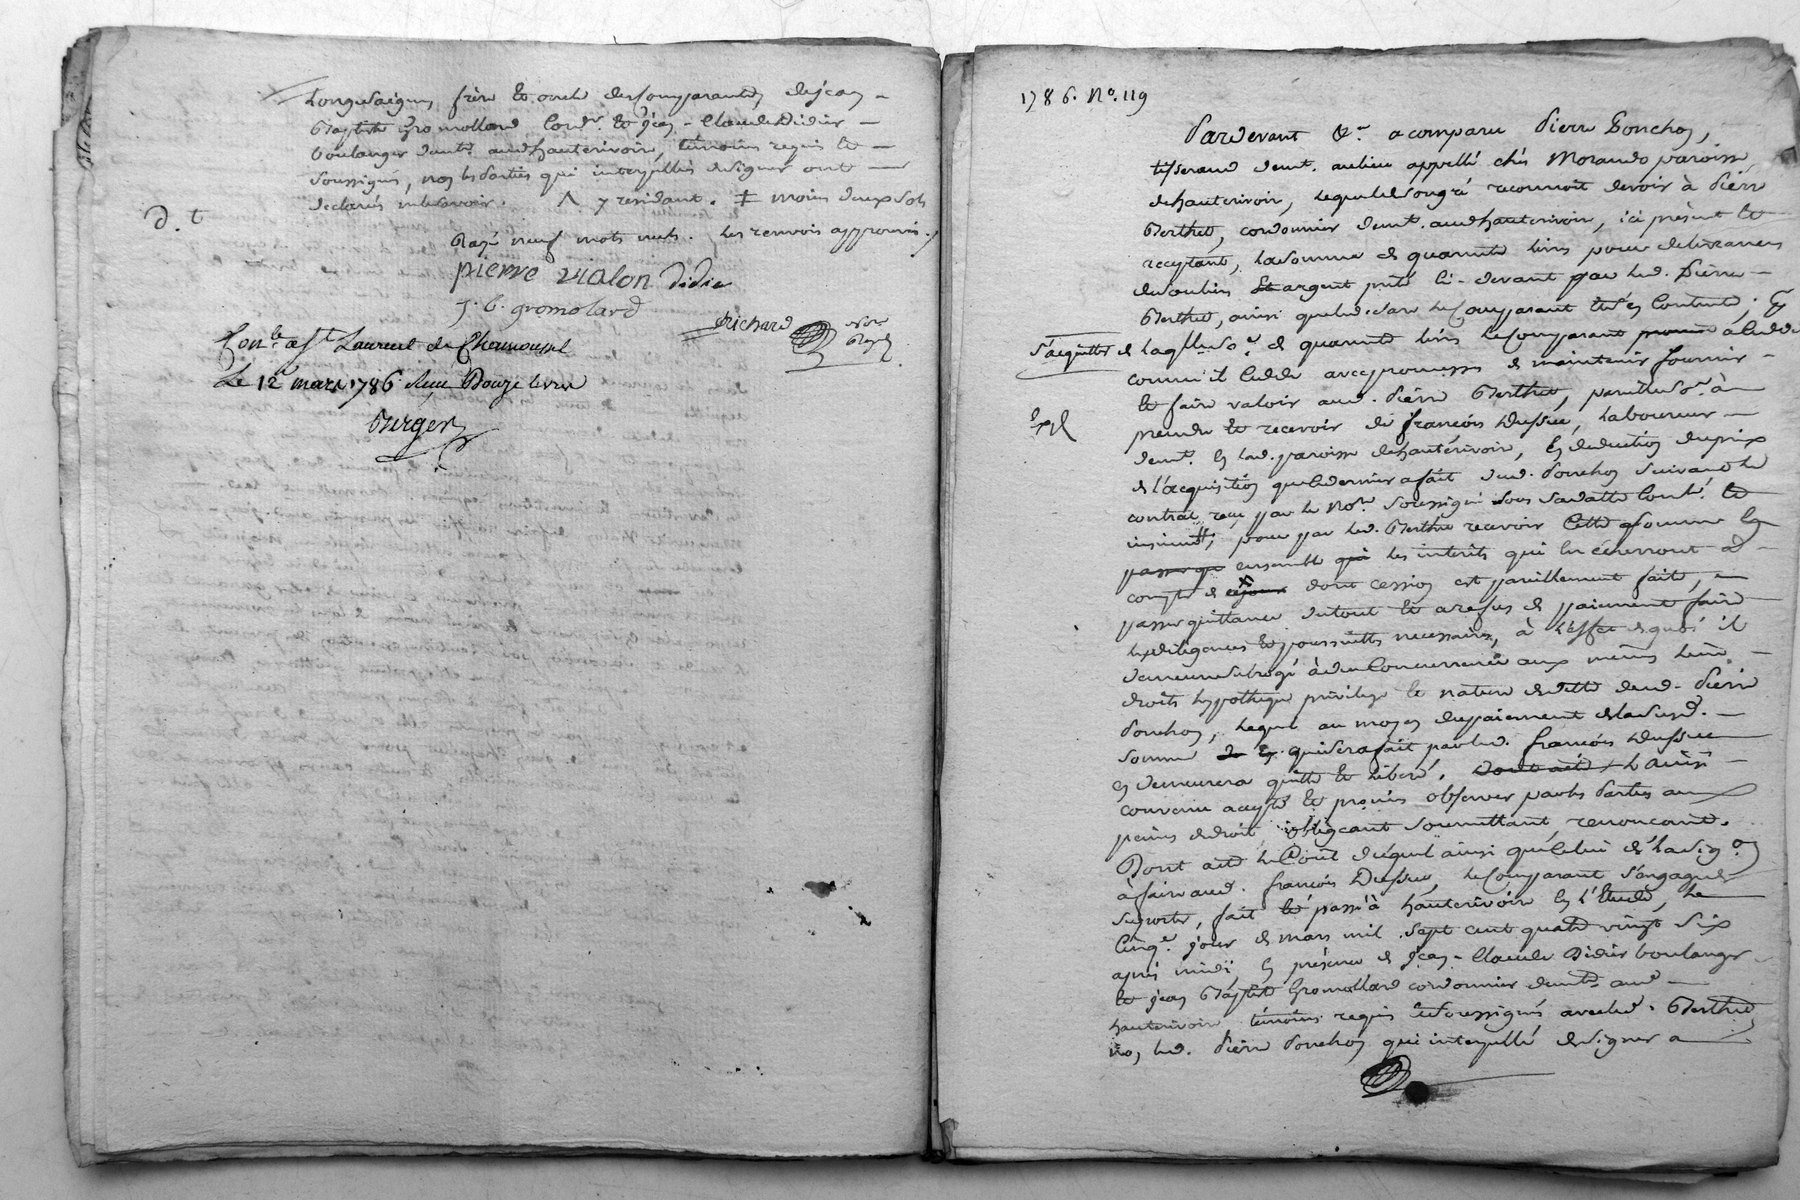 Longuesaigne, frère et oncle des Comparantes, de jean
Baptiste Gromollard Cord.r et jean-Claude Didier
boulanger dem.t aud hauterivoire, témoins requis et
soussignés, non les parties qui interpellées de signer ont
declarés ne le savoir. y residant. moins deux sols
D. t
Rayé neuf mots nuls. Les renvois approuvés.
pierre vialon Didier
J. B. gromolard
Richard not.re Royal
Con.lé a S.t Laurent de Chamousset
Le 12 mars 1786 Reçu Douze livres
Burger
1786. N.o 119
Pardevant &.a a comparu Pierre Ponchon,
tisserand demt. au lieu appellé chés Morando paroisse
de hauterivoire, lequel de son gré reconnoit devoir à Pierre
Berthet, cordonnier demt. aud hauterivoire, ici présent et
acceptant, la somme de quarante livres pour delivrances
de souliers et argent prété ci-devant par led. Pierre
Berthet, ainsi que le declare le Comparant très en Content; En
s'acquitter de laquelle so.e de quarante livres le Comparant promet a cedé
comme il cedde avec promesses de maintenir fournir
et faire valoir aud. Pierre Berthet, pareille so.e à
prendre et recevoir de françois Dussuc, laboureur
demt. en lad. paroisse de hauterivoire, en deduction du prix
de l'acquisition que ce dernier a fait dud. Ponchon suivant le
contrat reçu par le No.re soussigné sous sa datte Contlé. et
insinué; pour par led. Berthet recevoir cette somme en
passer qu ensemble qui les interets qui en écherront à
compter de ce jour dont cession est pareillement faite,
passer quittance du tout et a refus de paiement faire
les diligences et poursuittes necessaires, à l'effet de quoi il
demeure subrogé à due Concurrence aux mêmes lieu
droits hypothèque privilege et nature de dette dud. Pierre
Ponchon, lequel au moyen du paiement de la susd.
somme de En qui sera fait par led. françois Dussuc
en demeurera quitte et liberé. Dont acte / L'ainsi
convenu accepté et promis observer par les Parties aux
peines de droit obligeant soumettant, renonçant.
Dont acte le Coût duquel ainsi que celui de la sig.on
à faire aud. françois Dussuc, le Comparant s'engage de
suporter, fait et passé à hauterivoire en l'Etude, le
Cinq.e jour de mars mil sept cent quatre vingt six
après midi, en présence de jean-Claude Didier boulanger
et jean Baptiste Gromollard cordonnier demts. aud
hauterivoire témoins requis et soussignés avec led. Berthet
non, led. Pierre Ponchon qui interpellé de signer a